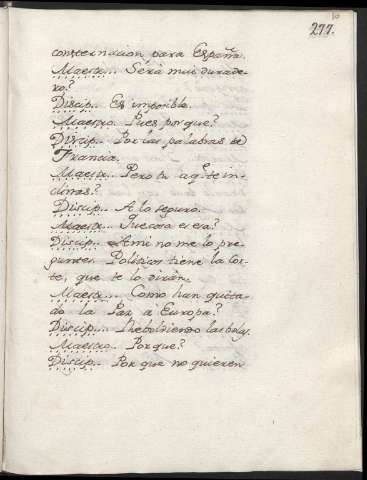 10
277.
consternacion para España.
Maestr... Será mui durade-
ro?
Discip... Es imposible.
Maestro. Pues porque?
Discip... Por las palabras de
Francia.
Maestr... Pero tu a q.e te in-
clinas?
Discip... A lo seguro.
Maestr... Que cosa es esa?
Discip... A mi no me lo pre-
guntes. Politicos tiene la Cor-
te, que te lo dirán.
Maestr... Como han quita-
do la Paz a Europa?
Discip... las bolas.
Maestro.. Porque?
Discip... Por que no quieren